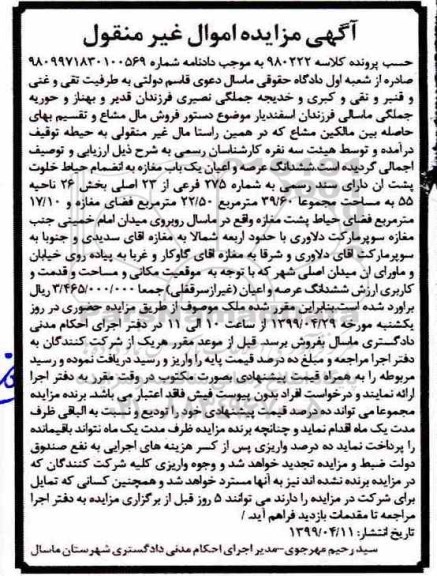 آگهی مزایده اموال غیر منقول
حسب پرونده کلاسه ۹۸۰۲۲۲ به موجب دادنامه شماره ۹۸۰۹۹۷۱۸۳۰۱۰۰۵۶۹
صادره از شعبه اول دادگاه حقوقی ماسال دعوی قاسم دولتی به طرفیت تقی و غنی
و قنبر و نقی و کبری و خدیجه جملگی نصیری فرزندان قدیر و بهناز و حوریه
جملگی ماسالی فرزندان اسفندیار موضوع دستور فروش مال مشاع و تقسیم بهای
حاصله بین مالکین مشاع که در همین راستا مال غیر منقولی به حیطه توقیف
درآمده و توسط هیئت سه نفره کارشناسان رسمی به شرح ذیل ارزیابی و توصیف
اجمالی گردیده است.ششدانگ عرصه و اعیان یک باب مغازه به انضمام حیاط خلوت
پشت ان دارای سند رسمی به شماره ۲۷۵ فرعی از ۲۳ اصلی بخش ۲۶ ناحیه
۵۵ به مساحت مجموعا ۳۹/۶۰ مترمربع ۲۲/۵۰ مترمربع فضای مغازه و ۱۷/۱۰
مترمربع فضای حیاط پشت مغازه واقع در ماسال روبروی میدان امام خمینی جنب
مغازه سوپرمارکت دلاوری با حدود اربعه شمالا به مغازه اقای سدیدی و جنوبا به
سوپرمارکت آقای دلاوری و شرقا به مغازه اقای گاوکار و غربا به پیاده روی خیابان
و ماورای ان میدان اصلی شهر که با توجه به موقعیت مکانی و مساحت و قدمت و
کاربری ارزش ششدانگ عرصه و اعیان (غیرازسرقفلی) جمعا ۳/۴۶۵/۰۰۰/۰۰۰ ریال
براورد شده است.بنابراین مقرر شده ملک موصوف از طریق مزایده حضوری در روز
یکشنبه مورخه ۱۳۹۹/۰۴/۲۹ از ساعت ۱۰ الی ۱۱ در دفتر اجرای احکام مدنی
دادگستری ماسال بفروش برسد. قبل از موعد مقرر هریک از شرکت کنندگان به
دفتر اجرا مراجعه و مبلغ ده درصد قیمت پایه را واریز و رسید دریافت نموده و رسید
مربوطه را به همراه قیمت پیشنهادی بصورت مکتوب در وقت مقرر به دفتر اجرا
ارائه نمایند و درخواست افراد بدون پیوست فیش فاقد اعتبار می باشد. برنده مزایده
مجموعا می تواند ده درصد قیمت پیشنهادی خود را تودیع و نسبت به الباقی ظرف
مدت یک ماه اقدام نماید و چنانچه برنده مزایده ظرف مدت یک ماه نتواند باقیمانده
را پرداخت نماید ده درصد واریزی پس از کسر هزینه های اجرایی به نفع صندوق
دولت ضبط و مزایده تجدید خواهد شد و وجوه واریزی کلیه شرکت کنندگان که
در مزایده برنده نشده اند نیز به آنها مسترد خواهد شد و همچنین کسانی که تمایل
برای شرکت در مزایده را دارند می توانند ۵ روز قبل از برگزاری مزایده به دفتر اجرا
مراجعه تا مقدمات بازدید فراهم آید. /
تاریخ انتشار: ۱۳۹۹/۰۴/۱۱
سید رحیم مهرجوی-مدیر اجرای احکام مدنی دادگستری شهرستان ماسال